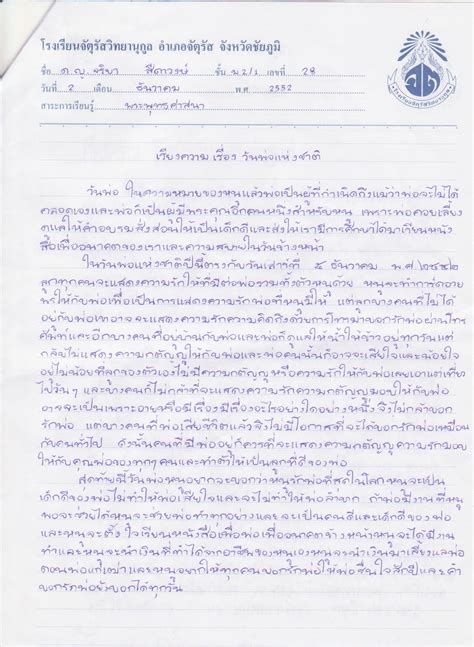 โรงเรียนจัตุรัสวิทยานุกูล อำเภอจัตุรัส จังหวัดชัยภูมิ
ชื่อ ด.ญ. จริยา สีดาวงษ์ ชั้น ม.2/1 เลขที่ 28
วันที่ 2 เดือน ธันวาคม พ.ศ. 2552
สาระการเรียนรู้ พระพุทธศาสนา
เรียงความ เรื่อง วันพ่อแห่งชาติ
วันพ่อ ในความหมายของหนูแล้วพ่อเป็นผู้ที่กำเนิดถึงแม้ว่าพ่อจะไม่ได้
คลอดเองและพ่อก็เป็นผู้มีพระคุณอีกคนหนึ่งสำหรับหนู เพราะพ่อคอยเลี้ยง
ดูแลให้คำอบรมสั่งสอนให้เป็นเด็กดีและส่งให้เรามีการศึกษาได้มาเรียนหนัง
สือเพื่ออนาคตของเราและความสบายในวันข้างหน้า
ในวันพ่อแห่งชาติปีนี้ตรงกับวันเสาร์ที่ ๕ ธันวาคม พ.ศ.๒๕๕๒
ลูกทุกคนจะแสดงความรักให้ที่มีต่อพ่อรวมทั้งตัวหนูด้วย หนูจะทำการ์ดอวย
พรให้กับพ่อเพื่อเป็นการแสดงความรักพ่อที่หนูมีให้ แต่ลูกบางคนที่ไม่ได้
อยู่กับพ่อเขาอาจจะแสดงความรักความคิดถึงด้วยการโทรมาบอกรักพ่อผ่านโทร
ศัพท์และอีกบางคนที่อยู่บ้านกับพ่อและพ่อก็ดูแลให้น้ำให้ข้าวอยู่ทุกวันแต่
กลับไม่แสดงความกตัญญูให้กับพ่อและพ่อคนนั้นก็อาจจะเสียใจและน้อยใจ
อยู่ไม่น้อยที่ลูกของตัวเองไม่มีความกตัญญูหรือความรักให้กับพ่อเลยเอาแต่เที่ยว
ไปวันๆ และบางคนก็ไม่กล้าที่จะแสดงความรักความกตัญญูมอบให้กับพ่อ
อาจจะเป็นเพราะอายหรือมีเรื่องอะไรอย่างใดอย่างหนึ่งจึงไม่กล้าบอก
รักพ่อ แต่บางคนที่พ่อเสียชีวิตแล้วจึงไม่มีโอกาสที่จะได้บอกรักพ่อเหมือน
กับคนทั่วไป ดังนั้นคนที่มีพ่ออยู่ก็ควรที่จะแสดงความกตัญญูความรักมอบ
ให้กับคุณพ่อของทุกๆคนและทำตัวให้เป็นลูกที่ดีของพ่อ
สุดท้ายนี้วันพ่อหนูอยากจะบอกว่าหนูรักพ่อที่สุดในโลกหนูจะเป็น
เด็กดีของพ่อไม่ทำให้พ่อเสียใจและจะไม่ทำให้พ่อลำบาก ถ้าพ่อมีงานที่หนู
พอจะช่วยได้หนูจะช่วยพ่อทำทุกอย่างและจะเป็นคนดีและเด็กดีของพ่อ
และหนูจะตั้งใจเรียนหนังสือเพื่อพ่อเพื่ออนาคตข้างหน้าหนูจะได้มีงาน
ทำและหนูจะนำเงินที่ทำได้จากอาชีพของหนูเองหนูจะนำเงินมาเลี้ยงแลพ่อ
ตอนพ่อแก่เฒ่าและหนูอยากให้ทุกคนบอกรักพ่อให้พ่อชื่นใจสักปีละคำ
บอกรักพ่อยังบอกได้ทุกวัน